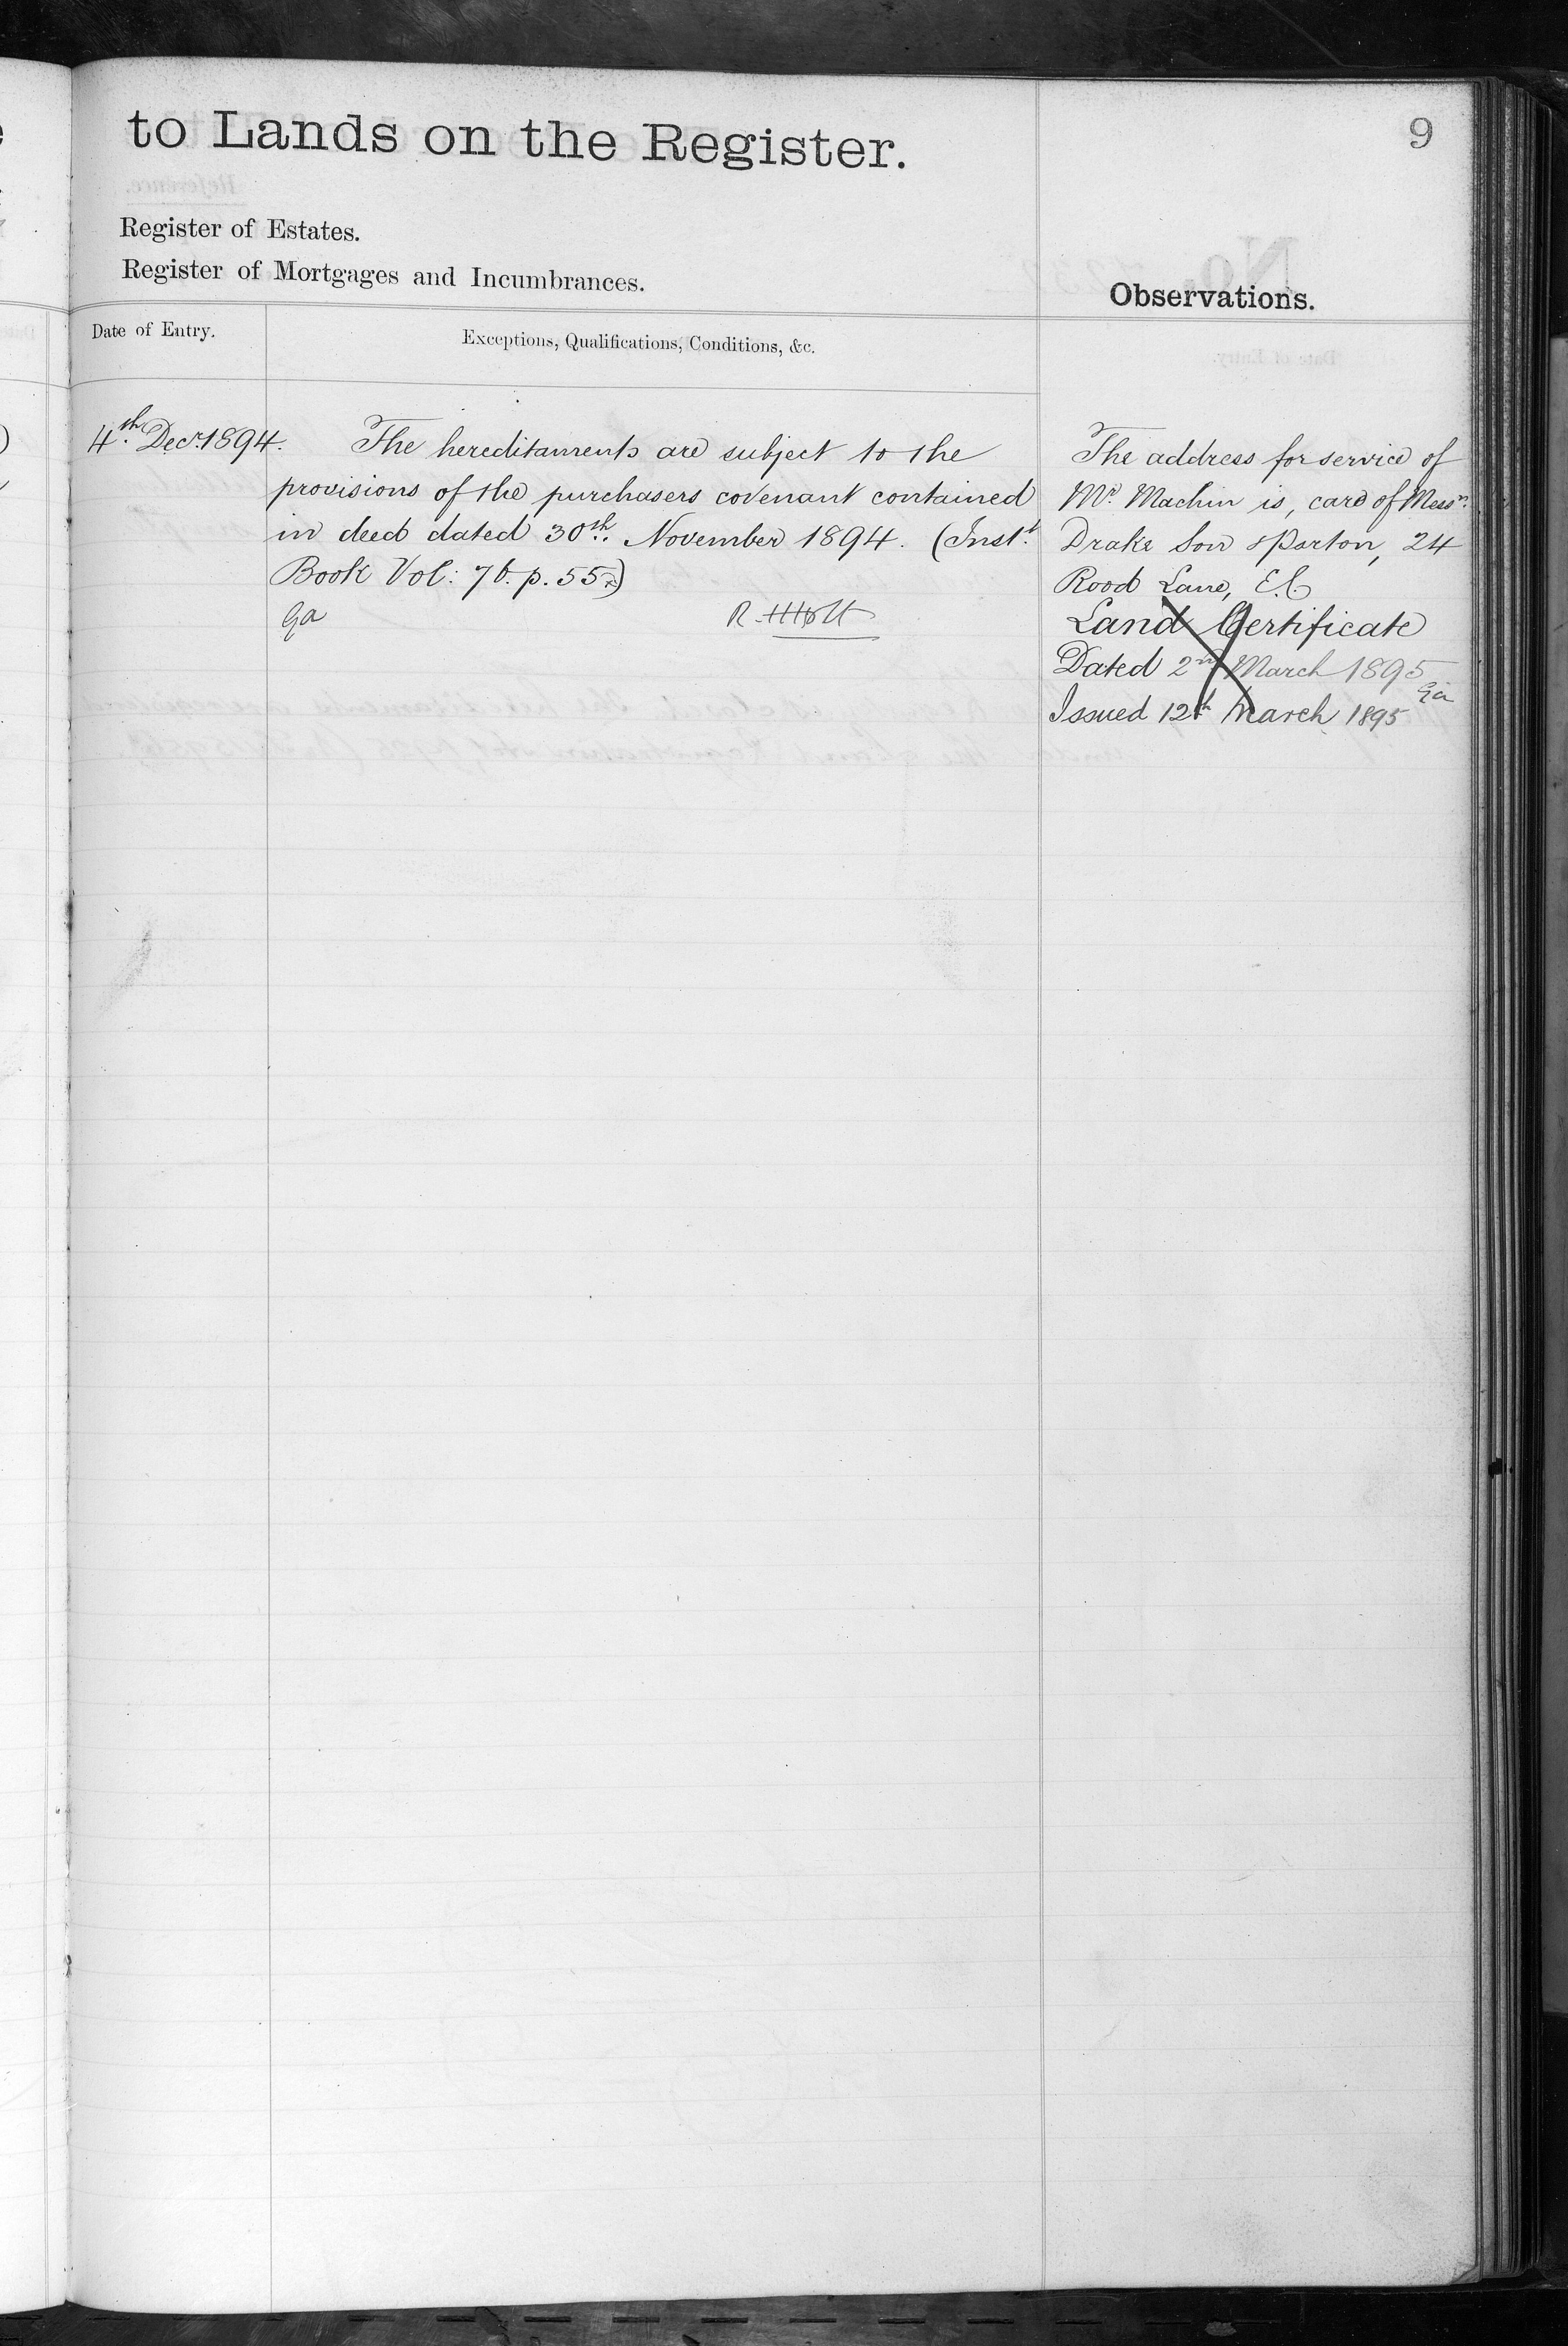 to Lands on the Register.
9
Register of Estates.
Register of Mortgages and Incumbrances.
Observations.
Date of Entry.
Exceptions, Qualifications, Conditions, &c.
4th. Decr. 1894.
The hereditaments are subject to the
provisions of the purchasers covenant contained
in deed dated 30th. November 1894. (Inst.t
Book Vol: 76. p. 55
Ga
The address for service of
Mr. Machin is, care of Messrs.
Drake Son & Parton, 24
Rood Lane, E.C
Land Certificate
Dated 2nd March 1895
Ga
Issued 12th March 1895